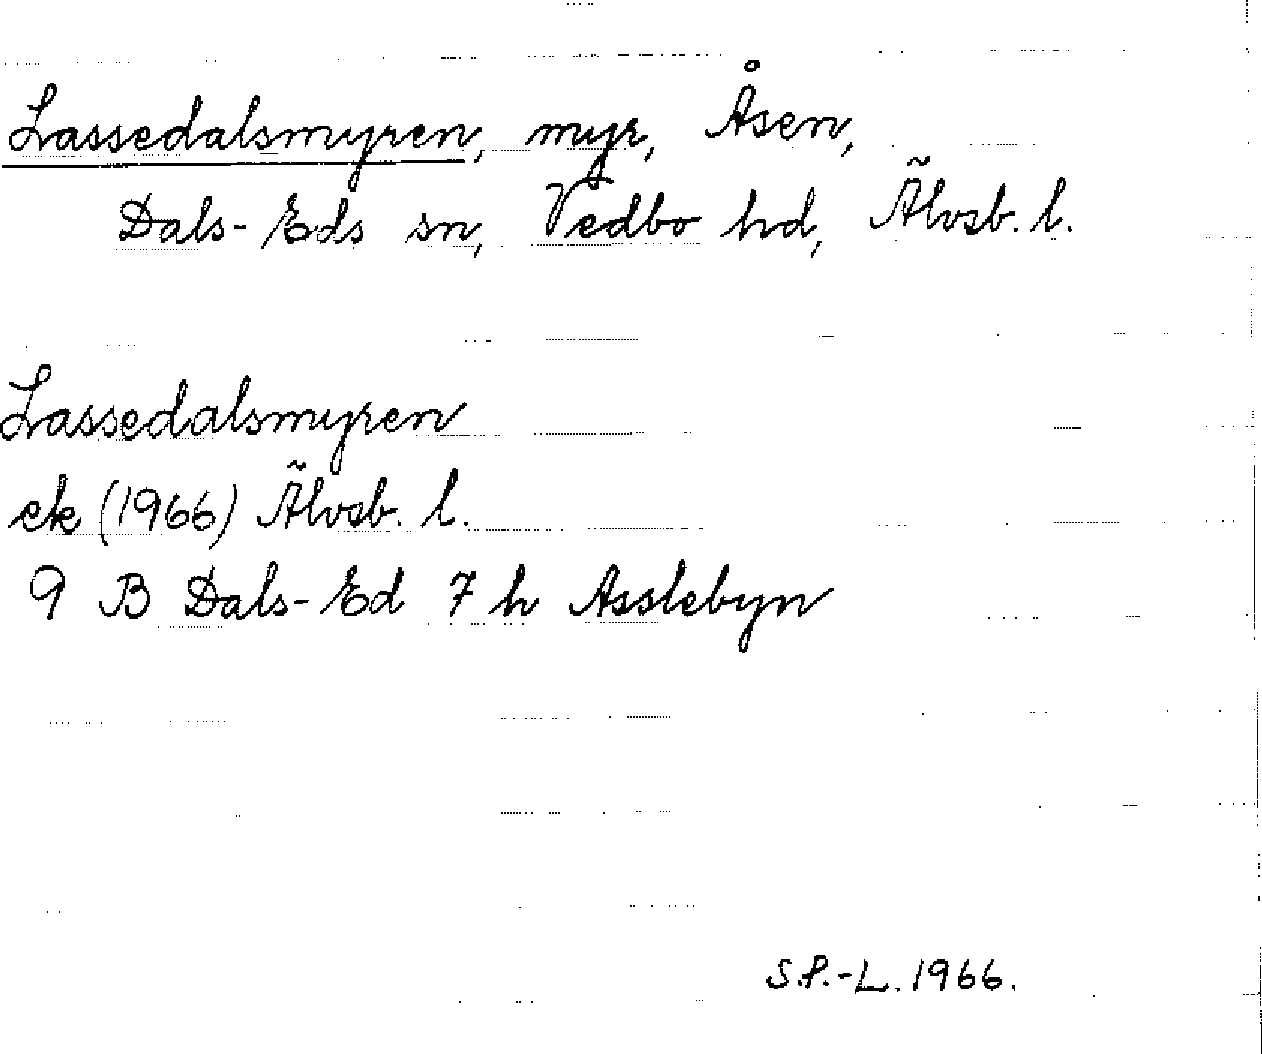 Lassedalsmyren, myr, Åsen,
Dals-Eds sn, Vedbo hd, Älvsb. l.
Lassedalsmyren
ek (1966) Älvsb. l.
9 B Dals-Ed 7 h Asslebyn
S.P.-L. 1966.